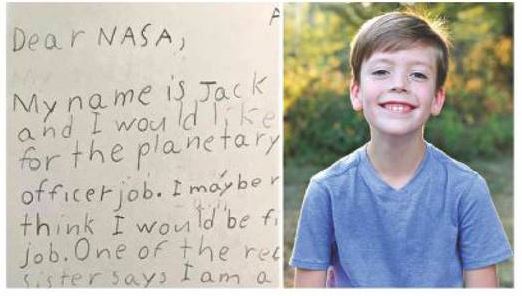 Dear NASA,
My name is Jack
and I would like
for the planetary
officer job. I may be
think I would be
job. One of the
sister says I am a